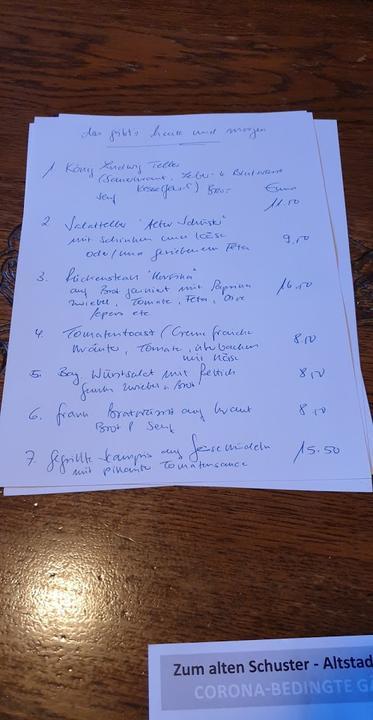 das gibts heute und morgen
1 König Ludwig Teller
(Sauerkraut, Leber u Blutwurst
Senf Brot Euro
11.50
2. Salatteller "Alter Schuster"
mit Schinken und Käse
oder/und geriebenem Feta 9,50
3. Rückensteak "Korsika"
auf Brot garniert mit Paprika 16,50
Zwiebel, Tomate, Feta, Olive
Pepers etc
4. Tomatentoast / Creme fraiche 8,50
Kräuter, Tomate, überbacken
mit Käse
5. Bay Wurstsalat mit Rettich 8,50
Gurken Zwiebel u Brot
6. frank Bratwürst auf Kraut 8,50
Brot & Senf
7. Gegrillte Scampis auf Gemüsenudeln 15.50
mit pikante Tomatensauce
Zum alten Schuster - Altstad
CORONA-BEDINGTE GÄ